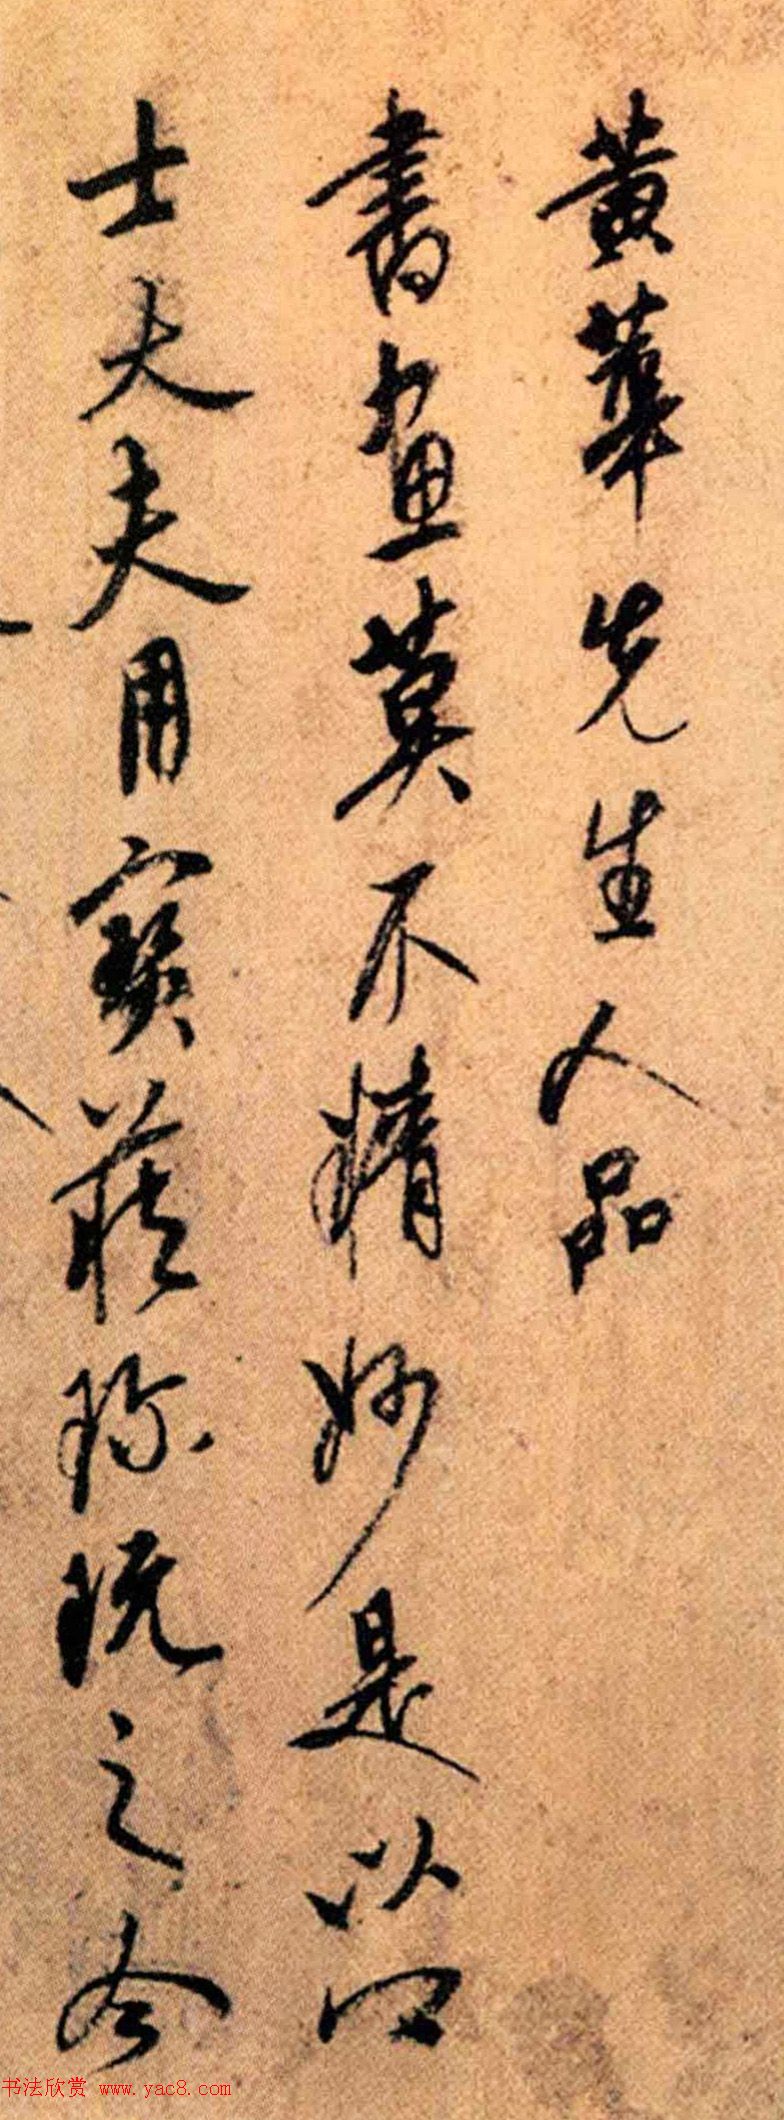 黄華先生人品
書畫莫不精妙是以四
士大夫用寶藏珎玩之今
书法欣赏 www.yac8.com